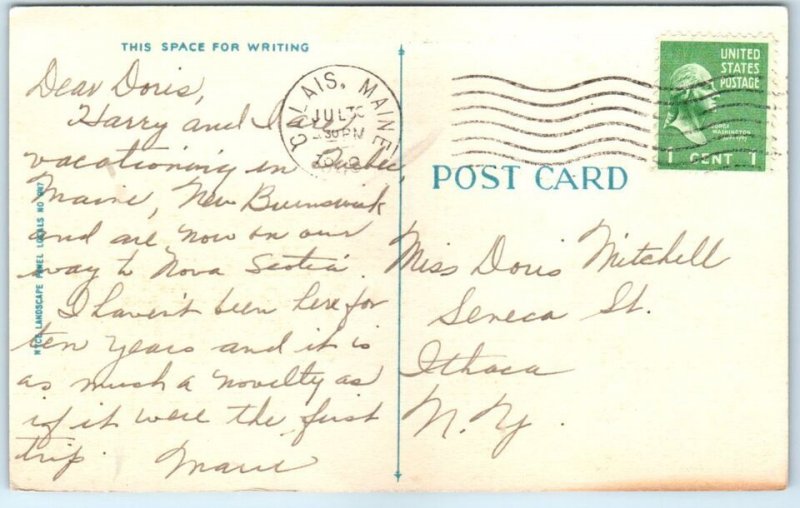 THIS SPACE FOR WRITING
Dear Doris,
Harry and I are
vacationing in Quebec,
Maine, New Brunswick
and are now on our
way to Nova Scotia.
I haven't been here for
ten years and it is
as much a novelty as
if it were the first
trip.
CALAIS, MAINE
JUL
30 PM
UNITED
STATES
POSTAGE
WASHINGTON
1 CENT 1
POST CARD
Miss Doris Mitchell
Seneca St.
Ithaca
N.Y.
LANDSCAPE PANEL LOCALS NO